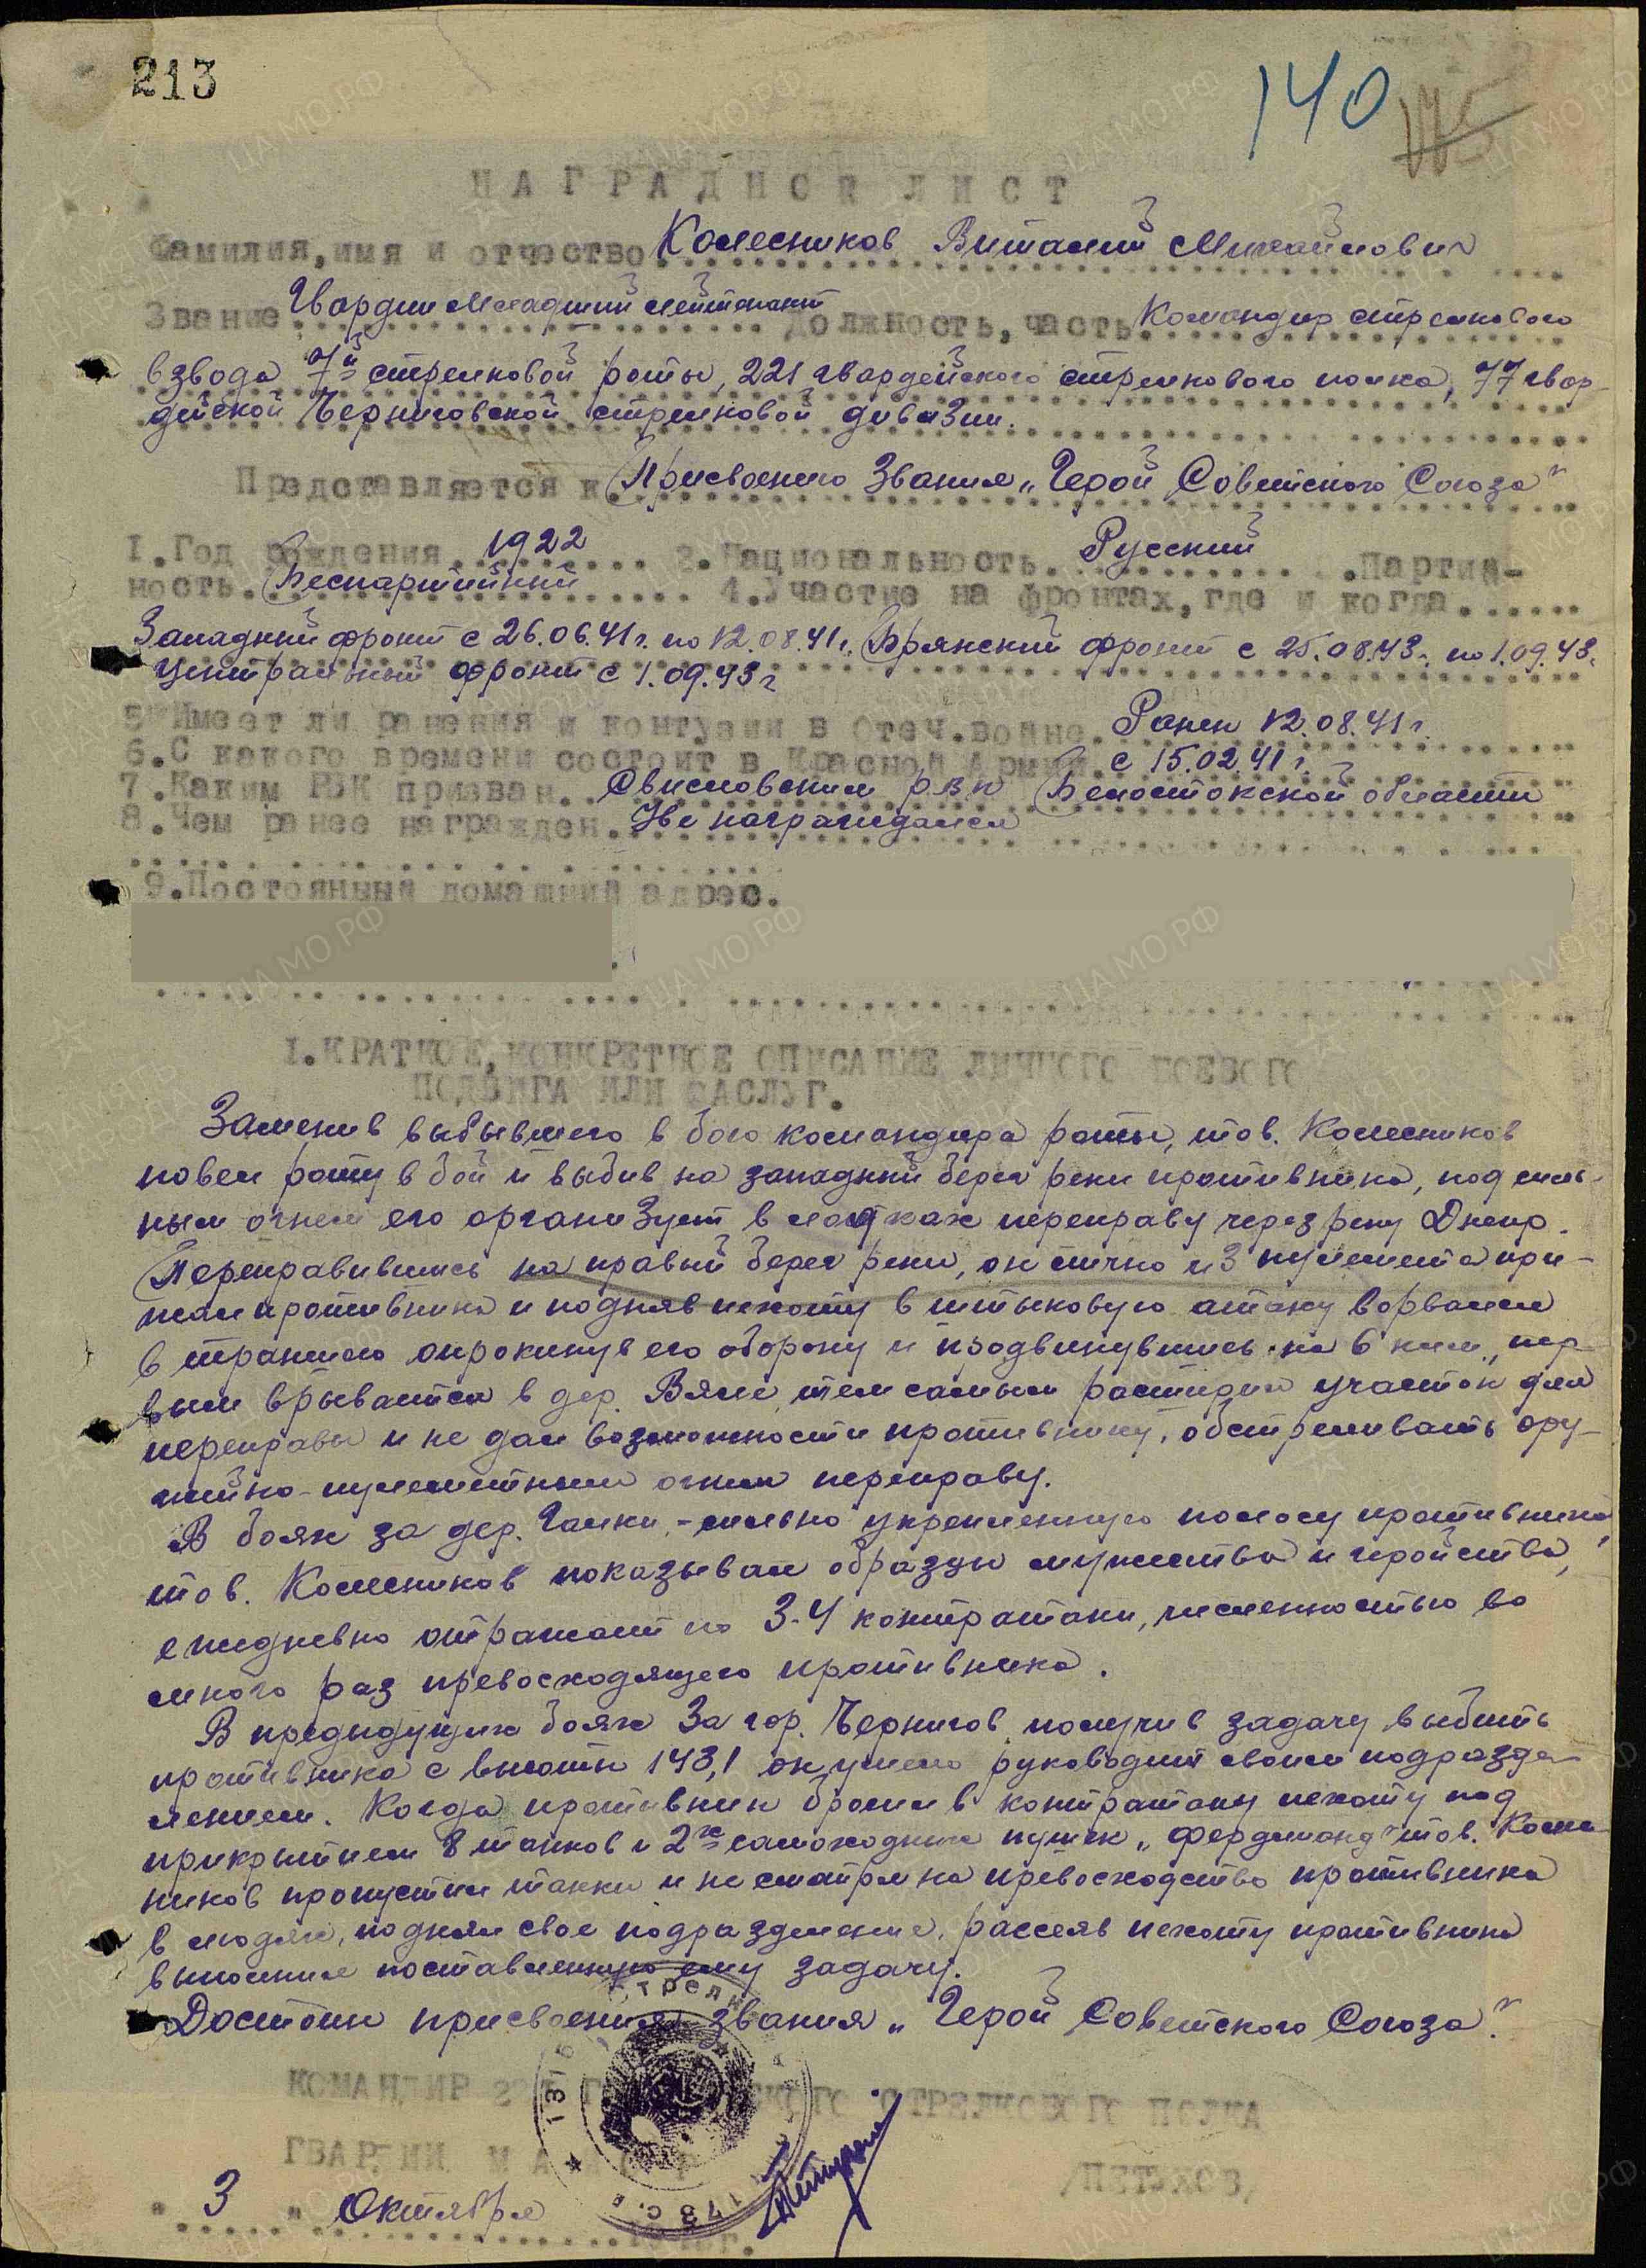 213
140
175
НАГРАДНОЙ ЛИСТ
Фамилия, имя и отчество Колесников Виталий Михайлович
Звание Гвардии Младший лейтенант Должность, часть Командир стрелкового
взвода 7й стрелковой роты, 221 гвардейского стрелкового полка, 77 гвар-
дейской Черниговской стрелковой дивизии.
Представляется к Присвоению Звания „Герой Советского Союза"
1. Год рождения 1922 2. Национальность Русский . Партий-
ность. Беспартийный 4. Участие на фронтах, где и когда
Западный фронт с 26.06.41г. по 12.08.41г., Брянский фронт с 25.08.43г. по 1.09.43г.
Центральный фронт с 1.09.43г
5. Имеет ли ранения и контузии в Отеч. войне. Ранен 12.08.41г.
6. С какого времени состоит в Красной Армии. с 15.02.41г.
7. Каким РВК призван. Свисловским рвк Белостокской области
8. Чем ранее награжден. Не награждался
9. Постоянный домашний адрес.
1. КРАТКОЕ, КОНКРЕТНОЕ ОПИСАНИЕ ЛИЧНОГО БОЕВОГО
ПОДВИГА ИЛИ ЗАСЛУГ.
Заменив выбывшего в бою командира роты, тов. Колесников
повел роту в бой и выбив на западный берег реки противника, под силь-
ным огнем его организует в лодках переправу через реку Днепр.
Переправившись на правый берег реки, он лично из пулемета при-
жал противника и подняв пехоту в штыковую атаку ворвался
в траншею опрокинув его оборону и продвинувшись на 6 килм., пер-
вым врывается в дер. Вяле, тем самым расширил участок для
переправы и не дал возможности противнику, обстреливать ору-
жейно-пулеметным огнем переправу.
В боях за дер. Галки, - сильно укрепленную полосу противника,
тов. Колесников показывал образцы мужества и геройства,
ежедневно отражает по 3-4 контратаки, численностью во
много раз превосходящего противника.
В предыдущих боях За гор. Чернигов получив задачу выбить
противника с высоты 143,1 он умело руководит своим подразде-
лением. Когда противник бросил в контратаку пехоту под
прикрытием 8 танков и 2х самоходных пушек „Фердинанд" тов. Колес-
ников пропустил танки и несмотря на превосходство противника
в людях, поднял свое подразделение, рассеяв пехоту противника
выполнил поставленную ему задачу.
Достоин присвоения звания „Герой Советского Союза".
КОМАНДИР 221 СТРЕЛКОВОГО ПОЛКА
ГВАРДИИ МАЙОР /ПЕТУХОВ/
" 3 " Октября